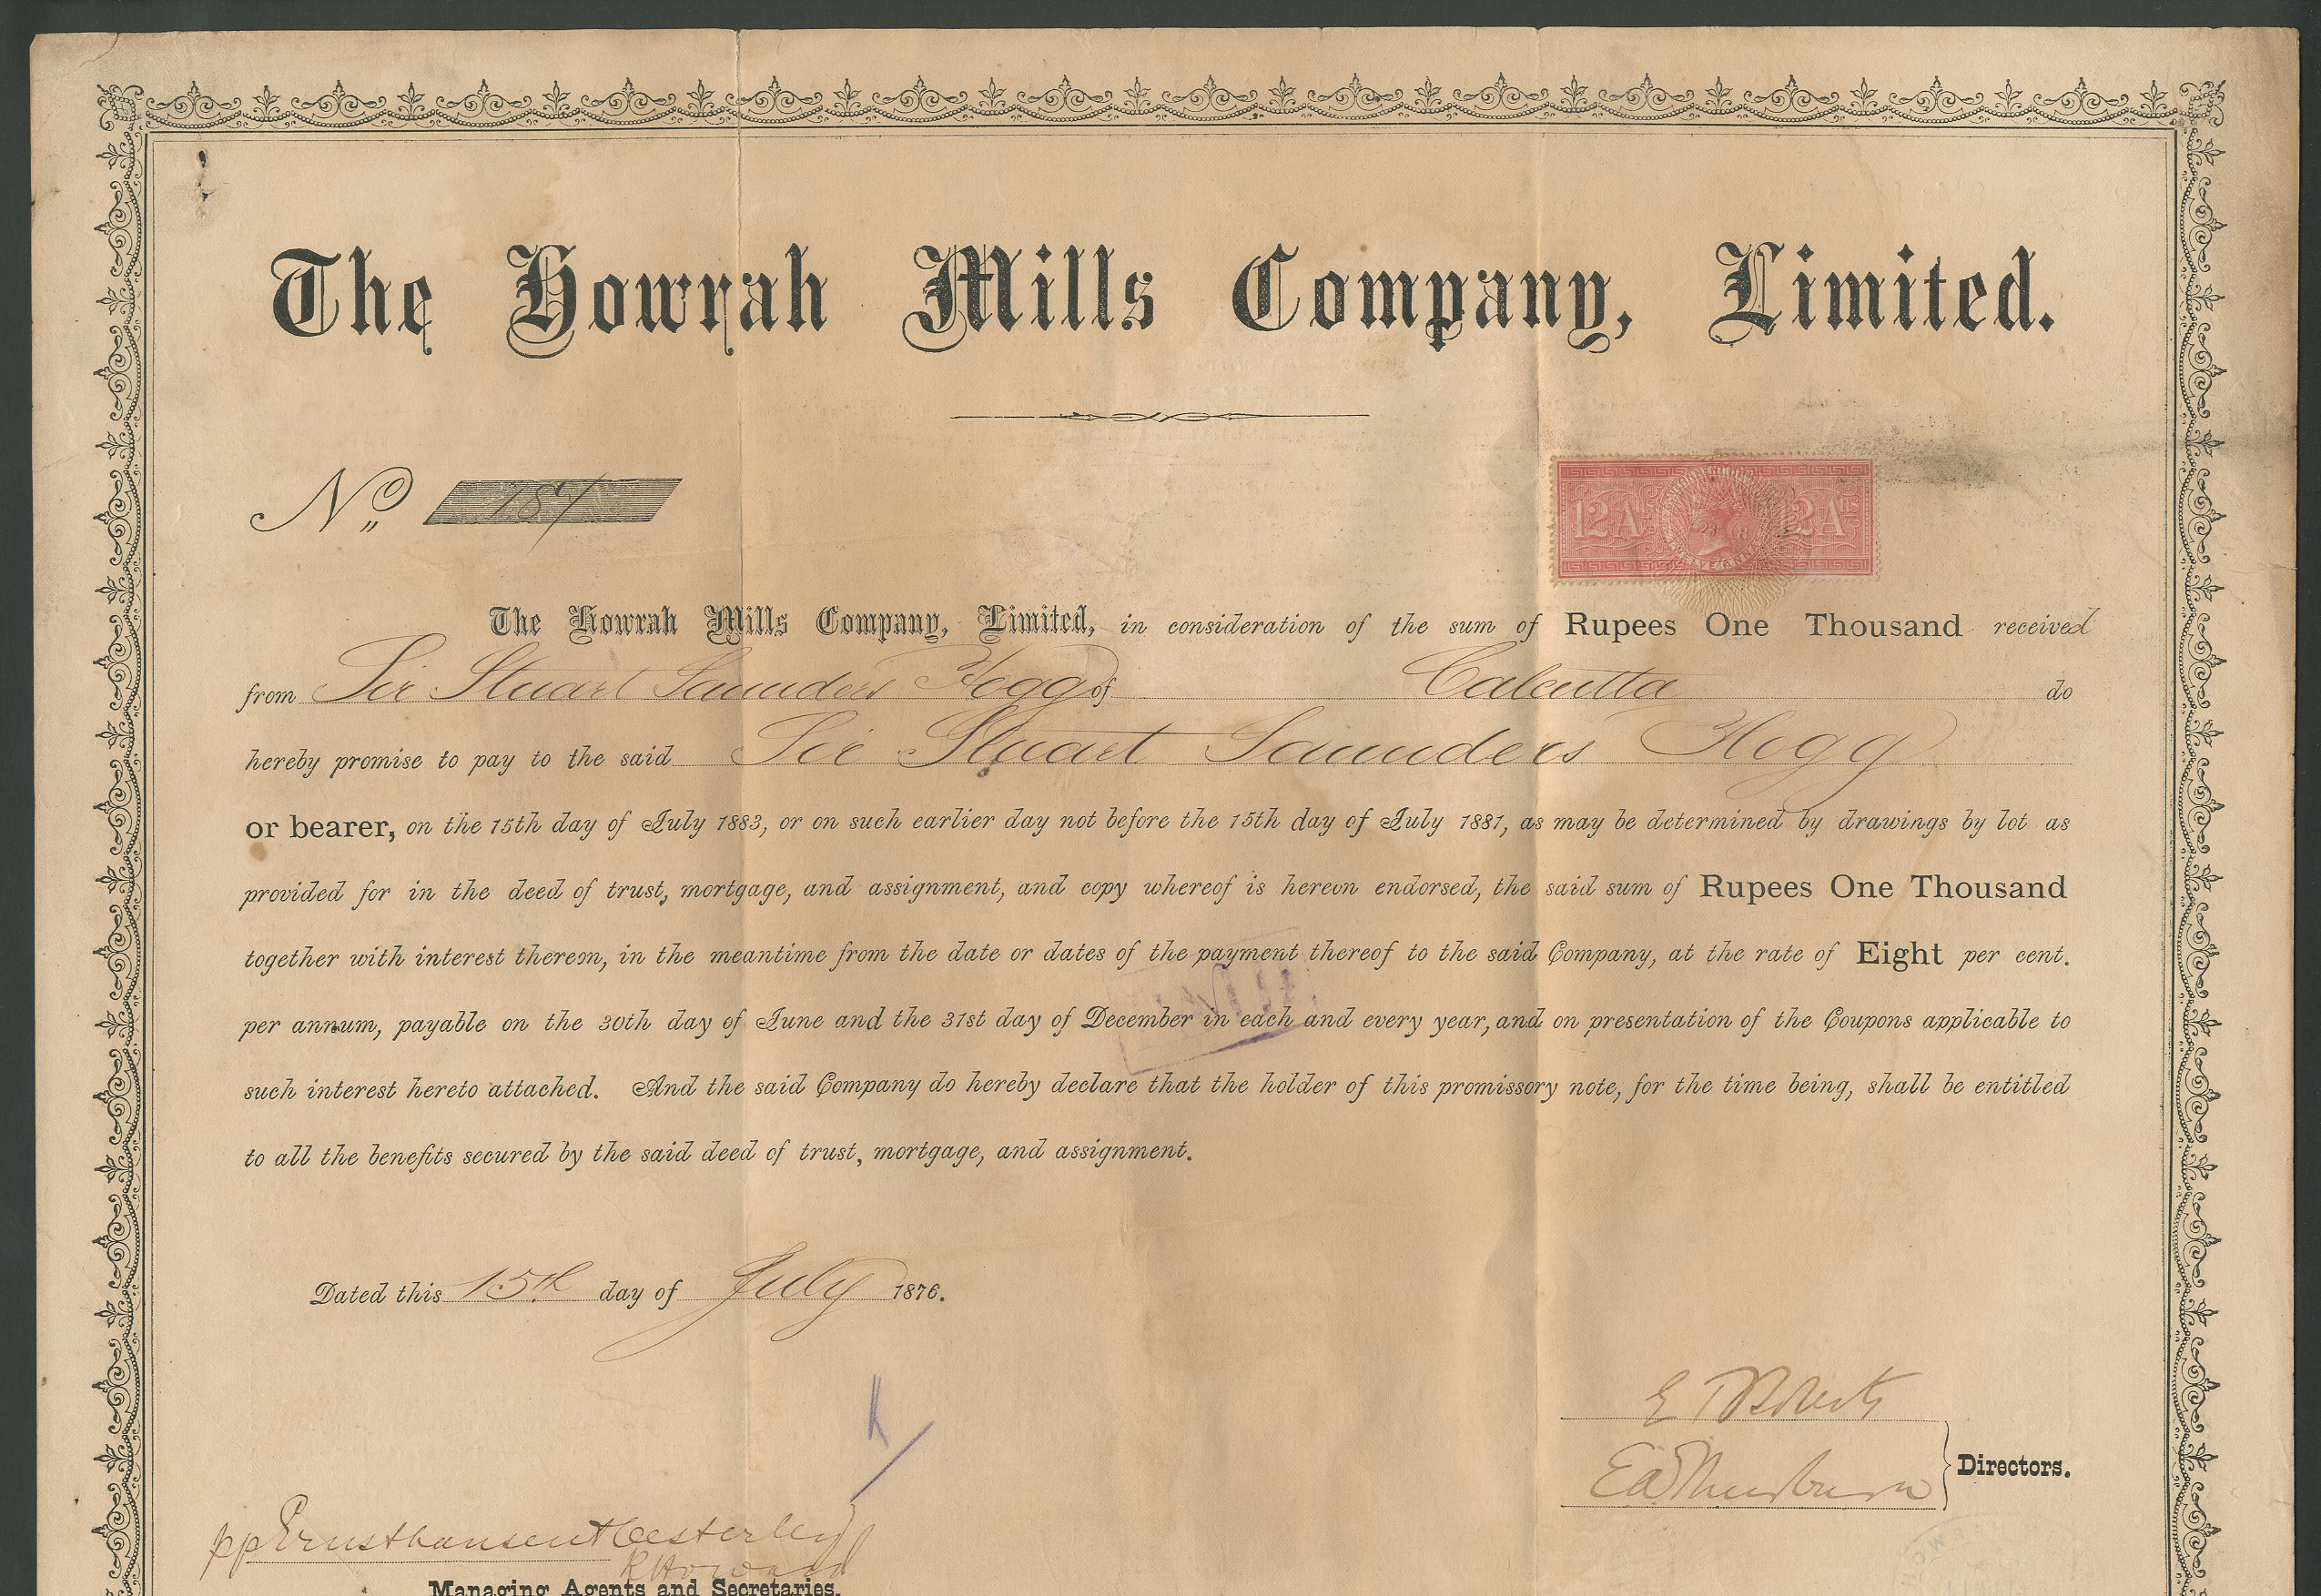 The Howrah Mills Company, Limited.
No. 187
12 As 12 As
The Howrah Mills Company, Limited, in consideration of the sum of Rupees One Thousand received
from Sir Stuart Saunders Hogg of Calcutta do
hereby promise to pay to the said Sir Stuart Saunders Hogg
or bearer, on the 15th day of July 1883, or on such earlier day not before the 15th day of July 1881, as may be determined by drawings by lot as
provided for in the deed of trust, mortgage, and assignment, and copy whereof is hereon endorsed, the said sum of Rupees One Thousand
together with interest thereon, in the meantime from the date or dates of the payment thereof to the said Company, at the rate of Eight per cent.
per annum, payable on the 30th day of June and the 31st day of December in each and every year, and on presentation of the Coupons applicable to
such interest hereto attached. And the said Company do hereby declare that the holder of this promissory note, for the time being, shall be entitled
to all the benefits secured by the said deed of trust, mortgage, and assignment.
Dated this 15th day of July 1876.
E T Roberts
Directors.
pp Ernsthausen & Oesterley
R Howard
Managing Agents and Secretaries.